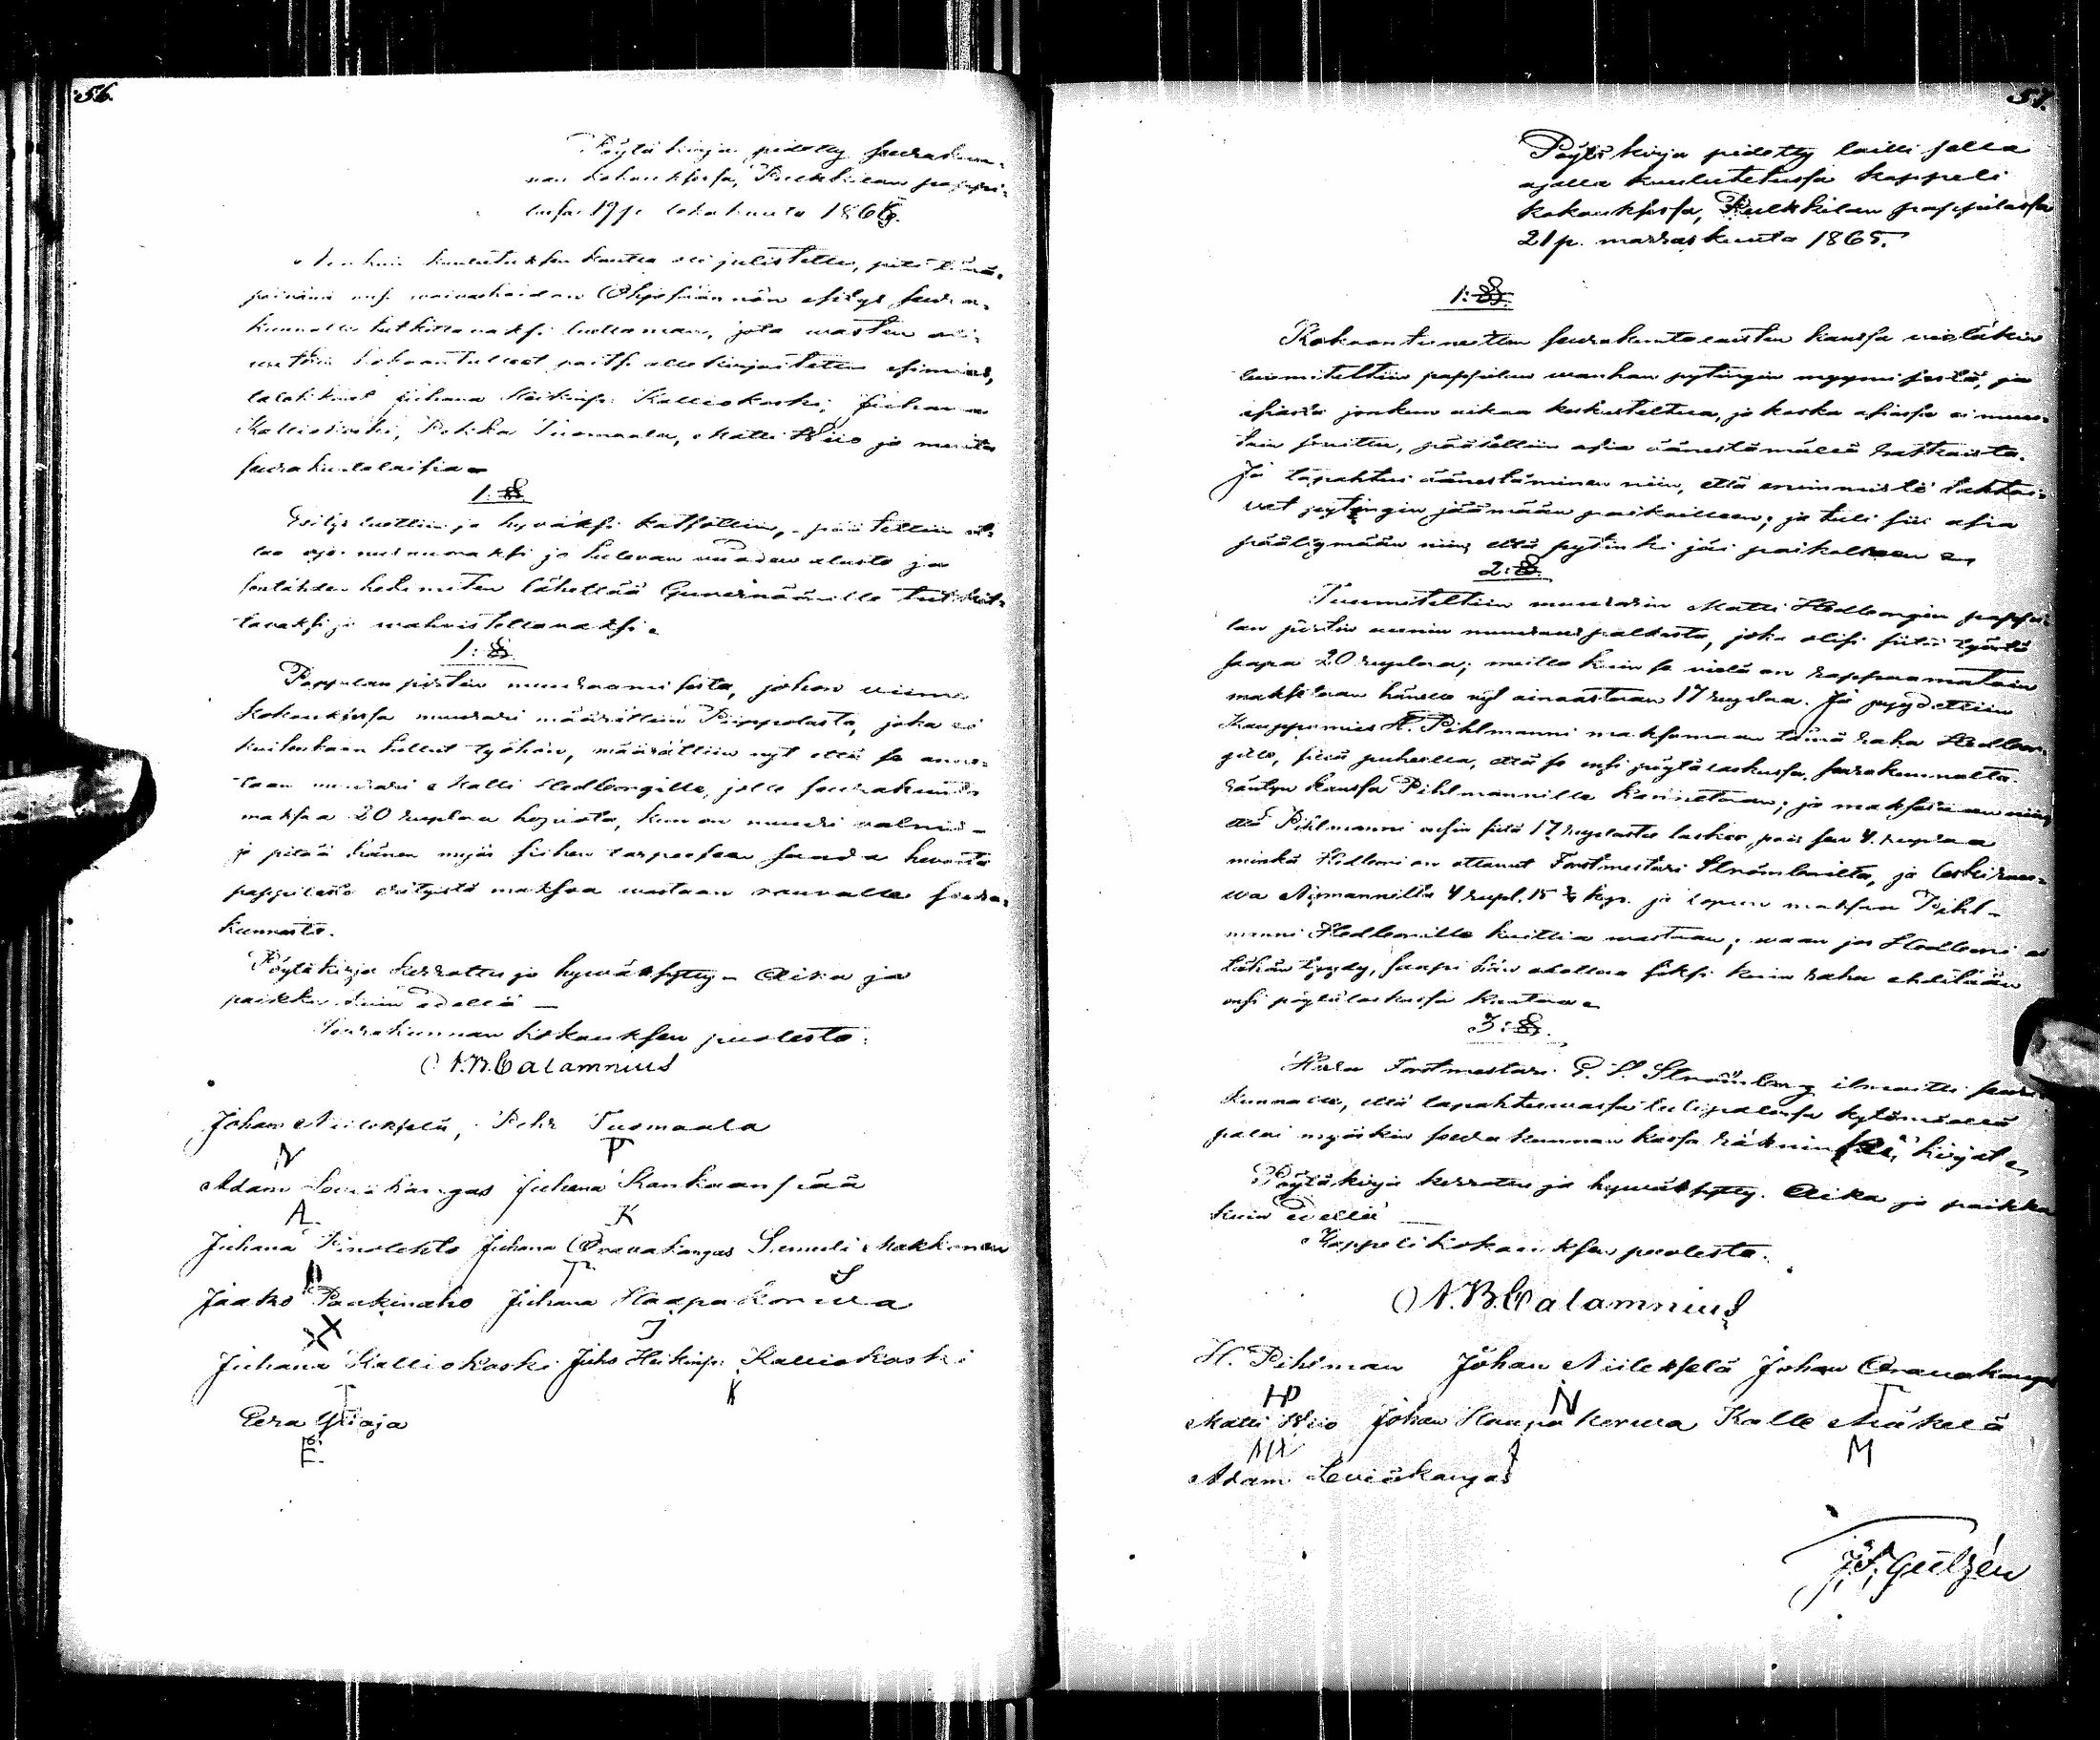 56.
Pöytäkirja pidetty seurakun-
nan kokouksessa, Pulkkilan pappi-
lassa 19 p. lokakuuta 1865.
kuin kuulutuksen kautta oli julistettu, piti tänä-
päivänä waivashoidon Ohjesäännön esitys seura-
kunnalle tutkittavaksi luettaman, jota warten
kokoontulleet paitsi allekirjoitettu esimies,
Juhana Heikinp. Kalliokoski, Juhana
Kalliokoski, Pekka Tuomaala, Matti Wiio ja muita
seurakuntalaisia
1:§.
Esitys luettiin ja hyväksi katsottiin, päätettiin
ja tulevan vuoden alusta ja
lähettää Guvernäärille tutkit-
tavaksi ja wahvistettavaksi.
1:§.
Pappilan pirtin muuraamisesta, johon viime
kokouksessa muurari määrättiin Piippolasta, joka ei
kuitenkaan tullut työhön, määrättiin nyt että se anne-
taan muurari Matti Hedbergille, jolle seurakunta
maksaa 20 ruplaa hopiata, kun on muuri valmis
ja pitää hänen myös siihen tarpeesen saada hevoista
pappilasta maksoa wastaan seura-
kunnasta.
Pöytäkirja kerrottu ja hyväksytty. Aika ja
paikka kuin edellä
Seurakunnan kokouksen puolesta:
N.B. Calamnius
Johan Niilekselä, Pehr Tuomaala
N P
Adam Leviäkangas Juhana Kankaanpää
A. K
Juhana Kinolehto Juhana Oravakangas Samuli Makkonen
T S
Jaako Paakinaho Juhana Haapakorwa
X J
Juhana Kalliokoski Juho Heikinp. Kalliokoski
T K
Eera Ylioja
E.
57.
Pöytäkirja pidetty laillisella
ajalla kuulutetussa kappeli
kokouksessa, Pulkkilan pappilassa
21 p. marraskuuta 1865.
1:§.
Kokoontunetten seurakuntalaisten kanssa wieläkin
tuumiteltiin pappilan wanhan pytingin myymisestä, ja
asiasta jonkun aikaa keskusteltua, ja koska asiassa ei muu-
toin sovittu, päätettiin asia äänestämällä ratkaista.
Ja tapahtui äänestäminen niin, että enimmistö tahtoi-
vat pytingin jäämään paikoilleen; ja tuli siis asia
päättymään niin, että pytinki jäi paikalleen
2:§.
Tuumiteltiin muurarin Matti Hedbergin pappi-
lan pirtin uunin muurauspalkasta, joka olisi siitä työstä
saapa 20 ruplaa; mutta kuin se vielä on rappaamatoin
maksetaan hänelle nyt ainoastaan 17 ruplaa. Ja pyydettiin
Kauppamies H. Pihlmanni maksamaan tämä raha Hedber-
gille, sillä puheella, että se ensi pöytälaskussa, seurakunnalta
räntyn kanssa Pihlmannille kannetaan; ja maksetaan niin,
että Pihlmanni ensin siitä 17 ruplasta laskee pois sen 4. ruplaa
minkä Hedberi on ottanut Forstmestari Strömberilta, ja leski
Nymannilta 4 rupl. 15 kop. ja lopun maksaa Pihl-
manni Hedberille kuittia wastaan; waan jos Hedberi ei
tähän tyydy, saapi hän odottaa siksi kuin raha ehditään
ensi pöytälaskussa kantaa.
3:§.
Herra Forstmestari Strömberg ilmoitti seura-
kunnalle, että tapahtuneessa tulipalossa kytömäellä
paloi myöskin seurakunnan kassa räkninki kirjat.
Pöytäkirja kerrottu ja hyväksytty. Aika ja paikka
kuin edellä
Kappelikokouksen puolesta.
N.B. Calamnius
H. Pihlman Johan Niilekselä Johan Oravakangas
HP N T
Matti Wiio Johan Haapakorwa Kalle Mäkelä
MW J M
Adam Leviäkangas
J.F. Gultzén